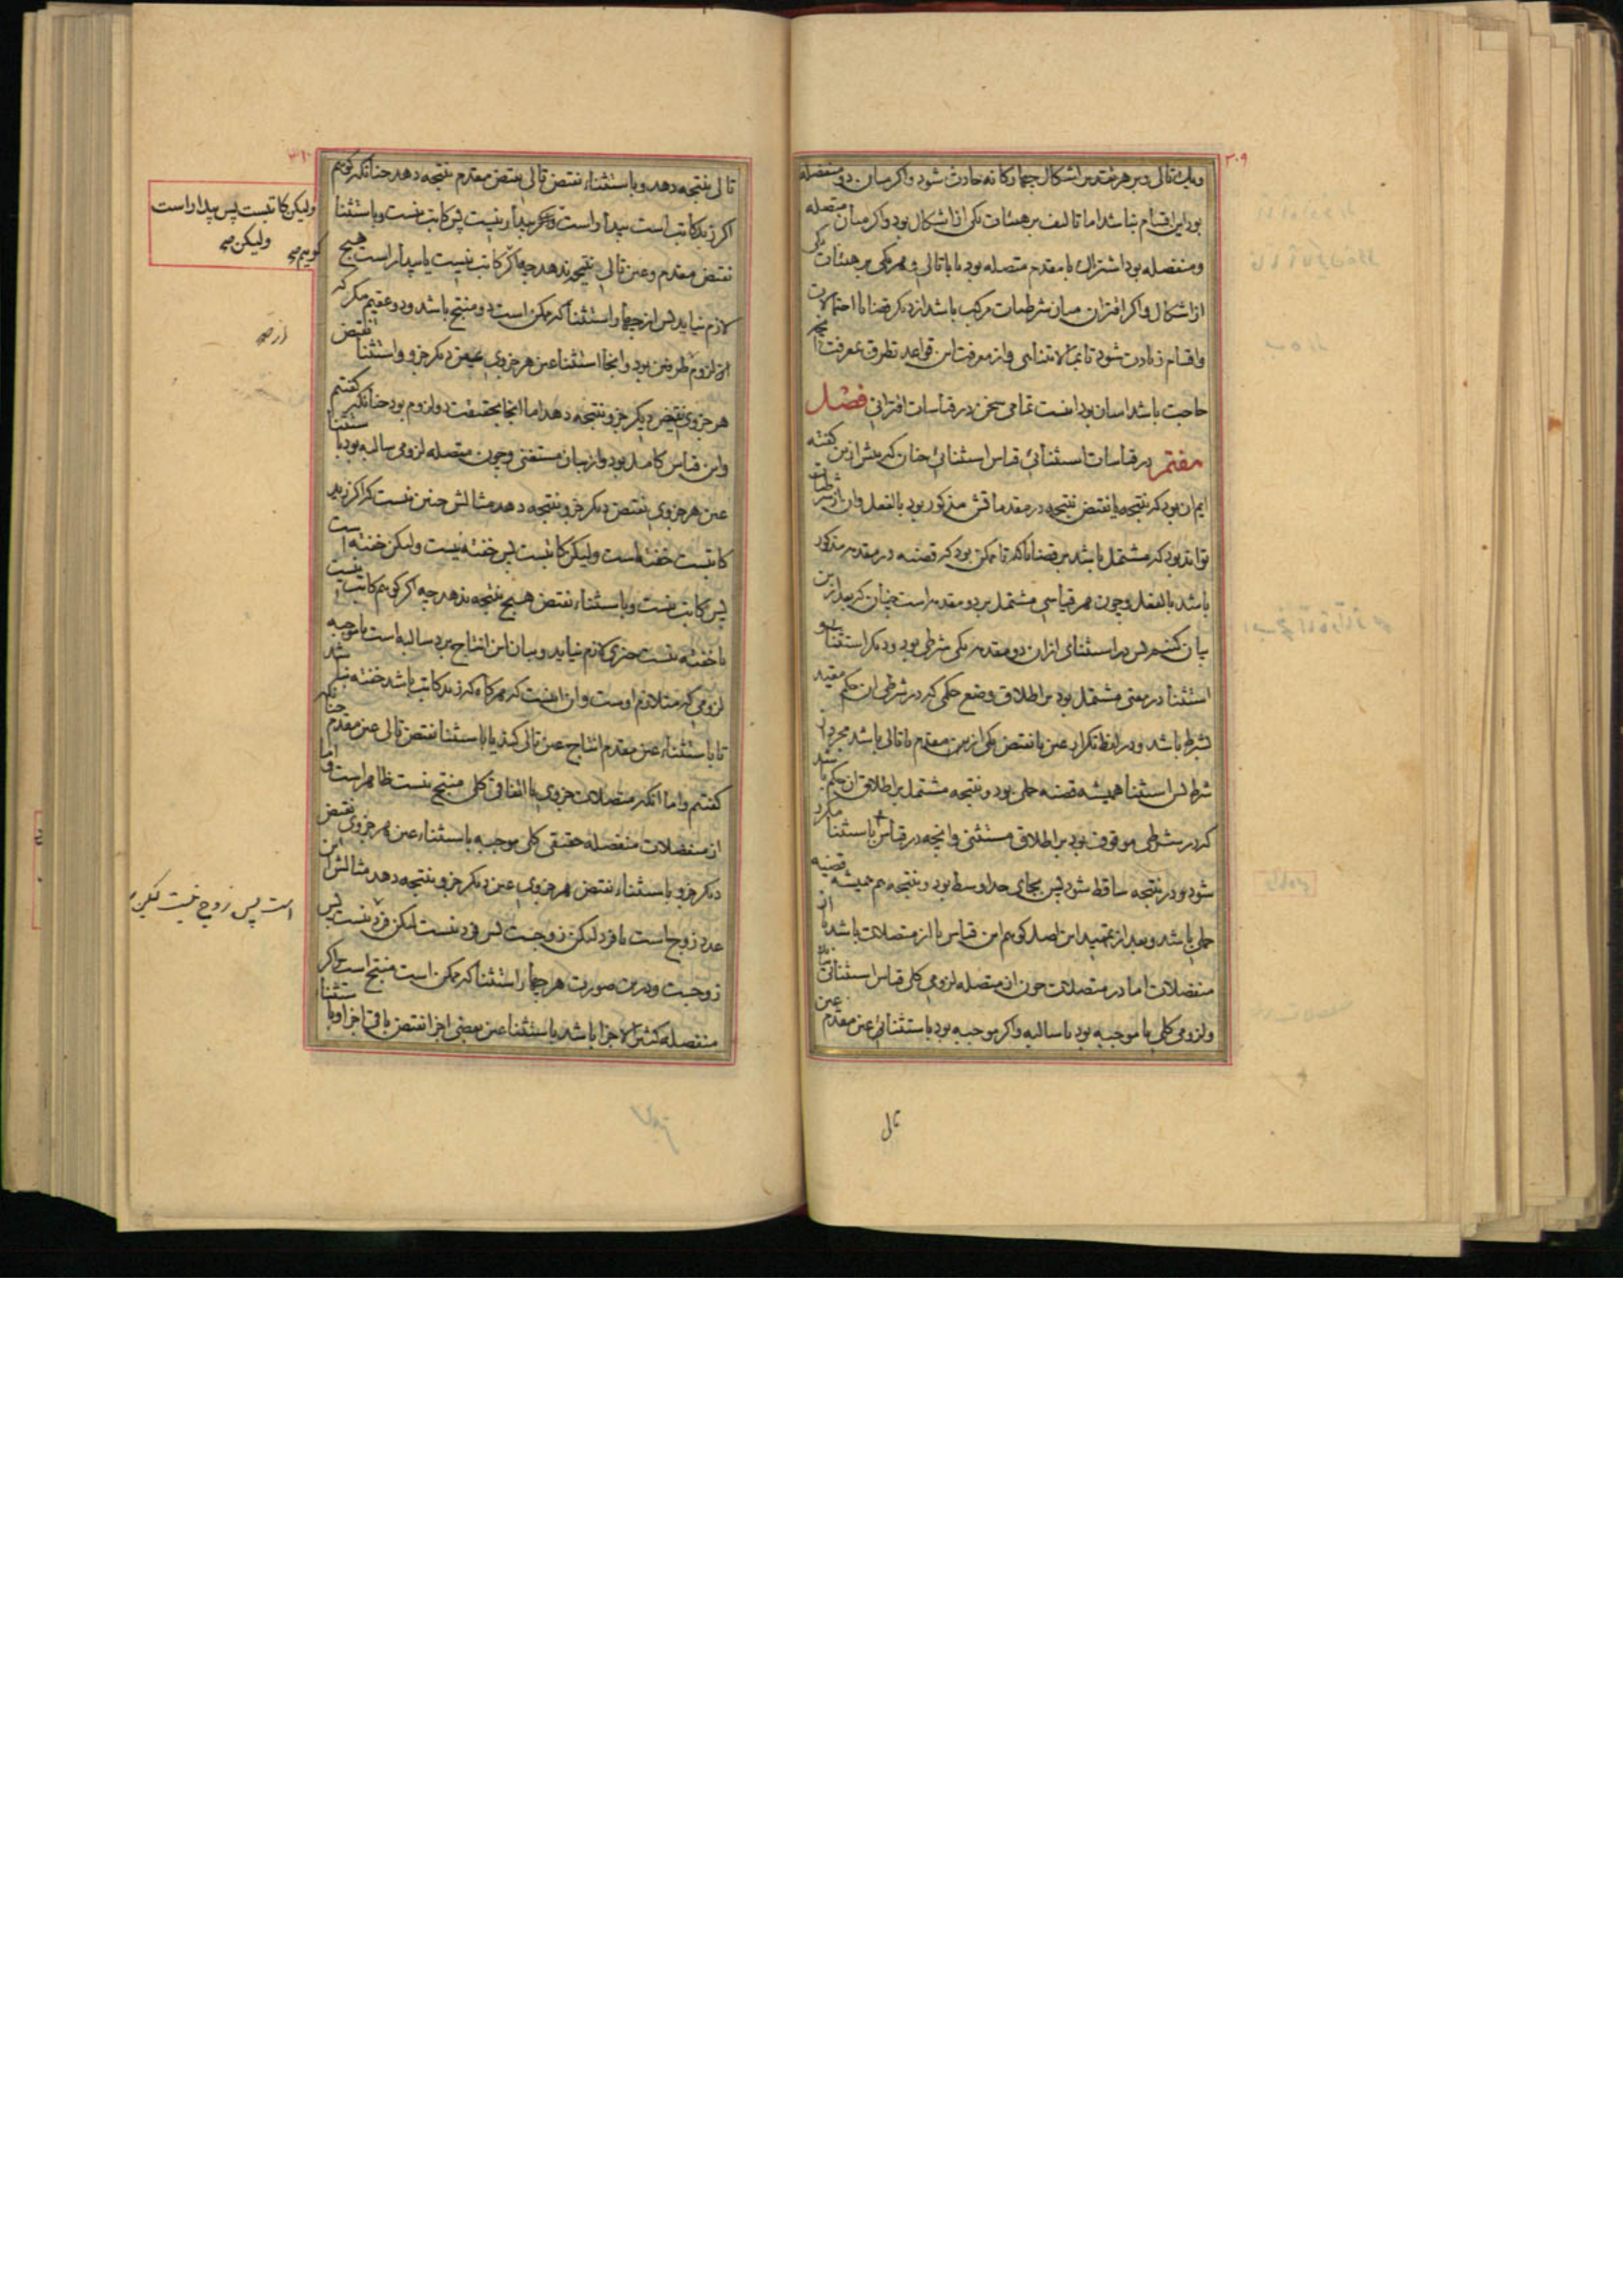 ۳۰۹
و یک تالی و بر هر تقدیر اشکال چهارگانه حادث شود و اگر میان دو منفصله
بود این اقسام نباشد اما تالیف بر هیئات یکی از اشکال بود و اگر میان متصله
و منفصله بود اشتراک با مقدم متصله بود یا با تالی و هر یکی بر هیئات یکی
از اشکال و اگر اقتران میان شرطیات مرکب باشد از دیگر قضایا احتمالات
و اقسام زیادت شود تا بما لا یتناهی و از معرفت این قواعد تطرق بمعرفت آنچه
حاجت باشد آسان بود اینست تمامی سخن در قیاسات اقترانی فصل
هفتم در قیاسات استثنائی قیاس استثنائی چنان که پیش ازین گفته
ایم آن بود که نتیجه یا نقیض نتیجه در مقدماتش مذکور بود بالفعل و آن از شرطیات
تواند بود که مشتمل باشد بر قضایا که تا ممکن بود که قضیه در مقدمه مذکور
باشد بالفعل و چون هر قیاسی مشتمل بر دو مقدمه است چنان که بعد ازین
بیان کنیم پس در استثنائی ازان دو مقدمه یکی شرطی بود و دیگر استثنا و
استثنا در معنی مشتمل بود بر اطلاق وضع حکمی که در شرطی آن حکم مقید
بشرط باشد و در لفظ تکرار عین یا نقیض یکی از بین مقدم یا تالی باشد مجرد از
شرط پس استثنا همیشه قضیه حملی بود و نتیجه مشتمل بر اطلاق آن حکم باشد
که در شرطی موقوف بود بر اطلاق مستثنی و آنچه در قیاس باستثنا مکرر
شود و در نتیجه ساقط شود پس بجای حد اوسط بود و نتیجه هم همیشه قضیه
حملی باشد و بعد از تمهید این اصل گوییم این قیاس یا از متصلات باشد یا از
منفصلات اما در متصلات چون از متصله لزومی کلی قیاس استثنائی سازند
و لزومی کلی یا موجبه بود یا سالبه و اگر موجبه بود باستثنائی عین مقدم عین
تالی
۳۱۰
تالی نتیجه دهد و باستثناء نقیض تالی نقیض مقدم نتیجه دهد چنانکه گوییم
اگر زید کاتب است بیدار است ولیکن بیدار نیست پس کاتب نیست و باستثنا
ولیکن کاتبست پس بیدار است
گوییم ولیکن
نقیض مقدم و عین تالی نتیجه ندهد چه اگر کاتب نیست یا بیدار است هیچ
لازم نیاید پس از چهار استثنا که ممکن است دو منتج باشد و دو عقیم مگر که
از لزوم طرفین بود و آنجا استثنا عین هر جزوی عین دیگر جزو و استثنا نقیض
هر جزوی نقیض دیگر جزو نتیجه دهد اما آنجا بحقیقت دو لزوم بود چنانکه گفتیم
و این قیاس کامل بود و از بیان مستغنی و چون متصله لزومی سالبه بود باستثنا
عین هر جزوی نقیض دیگر جزو نتیجه دهد مثالش چنین نیست که اگر زید
کاتبست خفته است ولیکن کاتبست پس خفته نیست ولیکن خفته است
پس کاتب نیست و باستثناء نقیض هیچ نتیجه ندهد چه اگر گوییم کاتب نیست
یا خفته نیست چیزی لازم نیاید و بیان این انتاج برد سالبه است با موجبه
لزومی که متلازم اوست و آن اینست که هرگاه که زید کاتب باشد خفته نباشد
تا باستثناء عین مقدم انتاج عین تالی کند یا باستثنا نقیض تالی عین مقدم چنانکه
گفتیم و اما آنکه متصلات جزوی یا اتفاقی کلی منتج نیست ظاهر است و اما
از منفصلات منفصله حقیقی کلی موجبه باستثناء عین هر جزوی نقیض
دیگر جزو باستثناء نقیض هر جزوی عین دیگر جزو نتیجه دهد مثالش این
عدد زوج است یا فرد لیکن زوجست پس فرد نیست لیکن فرد نیست پس
است پس زوج نیست لیکن
زوجست و درین صورت هر چهار استثنا که ممکن است منتج است و اگر
منفصله کثیر الاجزا باشد باستثنا عین بعضی اجزا نقیض باقی اجزا و باستثنا